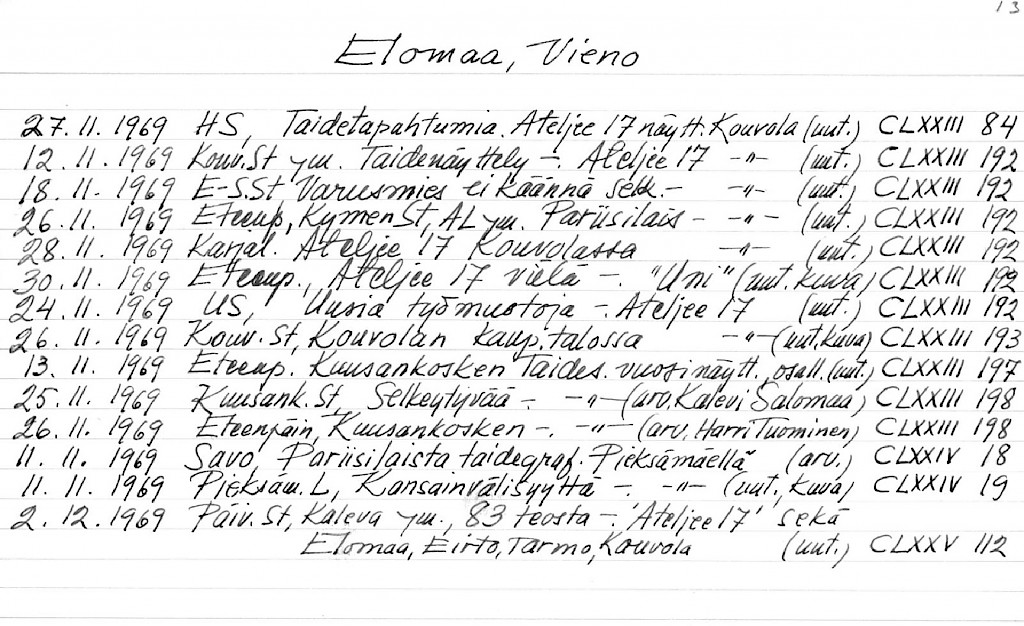 13
Elomaa, Vieno
27.11.1969 HS, Taidetapahtumia. Ateljee 17 näytt. Kouvola (uut.) CLXXIII 84
12.11.1969 Kouv.St ym. Taidenäyttely -. Ateljee 17 -"- (uut.) CLXXIII 192
18.11.1969 E-S.St Varusmies ei käännä selk.- -"- (uut.) CLXXIII 192
26.11.1969 Eteenp, Kymen St, AL ym. Pariisilais- -"- (uut.) CLXXIII 192
28.11.1969 Karjal. Ateljee 17 Kouvolassa -"- (uut.) CLXXIII 192
30.11.1969 Eteenp., Ateljee 17 vielä -. "Uni" (uut. kuva) CLXXIII 192
24.11.1969 US, Uusia työmuotoja -. Ateljee 17 (uut.) CLXXIII 192
26.11.1969 Kouv. St, Kouvolan kaup.talossa -"- (uut.kuva) CLXXIII 193
13.11.1969 Eteenp. Kuusankosken Taides. vuosinäytt., osall. (uut.) CLXXIII 197
25.11.1969 Kuusank.St, Selkeytyvää -. -"- (arv. Kalevi Salomaa) CLXXIII 198
26.11.1969 Eteenpäin, Kuusankosken -. -"- (arv. Harri Tuominen) CLXXIII 198
11.11.1969 Savo, Pariisilaista taidegraf. Pieksämäellä (arv.) CLXXIV 18
11.11.1969 Pieksäm. L, Kansainvälisyyttä -. -"- (uut., kuva) CLXXIV 19
2.12.1969 Päiv.St, Kaleva ym., 83 teosta -. 'Ateljee 17' sekä
Elomaa, Eirto, Tarmo, Kouvola (uut.) CLXXV 112